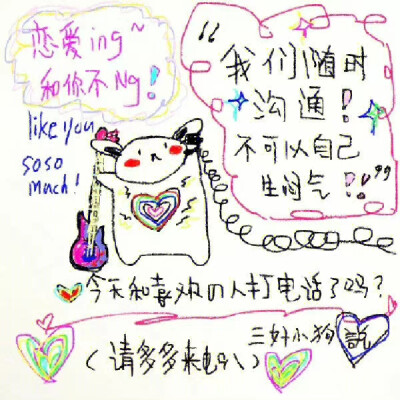 恋爱ing~
和你不Ng!
like you
so so
much!
“我们随时
沟通!
不可以自己
生闷气!!”
今天和喜欢の人打电话了吗?
三好小狗說
(请多多来电!\)